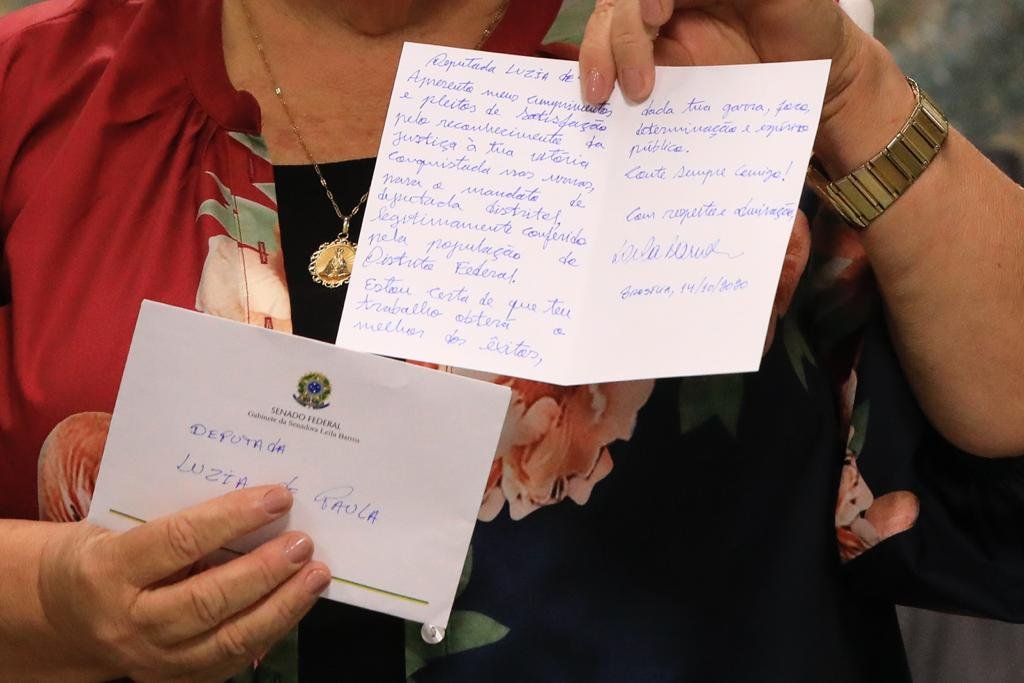 Deputada LUZIA de
Apresento meus cumprimentos
e pleitos de satisfação
pelo reconhecimento da
justiça à tua vitória
conquistada nas urnas,
para o mandato de
deputada distrital,
legitimamente conferido
pela população do
Distrito Federal.
Estou certa de que teu
trabalho obterá o
melhor dos êxitos,
dada tua garra, foco,
determinação e espírito
público.
Conte sempre comigo!
Com respeito e admiração,
Brasília, 14/10/2020
SENADO FEDERAL
Gabinete da Senadora Leila Barros
DEPUTADA
LUZIA de PAULA